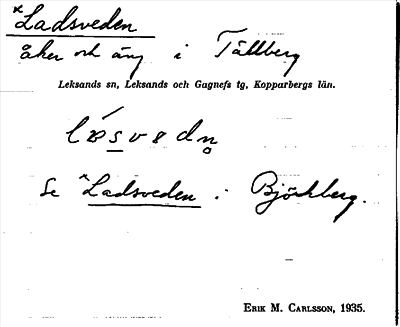 *Ladsveden
åker och äng i Tällberg
Leksands sn, Leksands och Gagnefs tg, Kopparbergs län.
læsvedn̥
Se *Ladsveden i Björkberg.
ERIK M. CARLSSON, 1935.